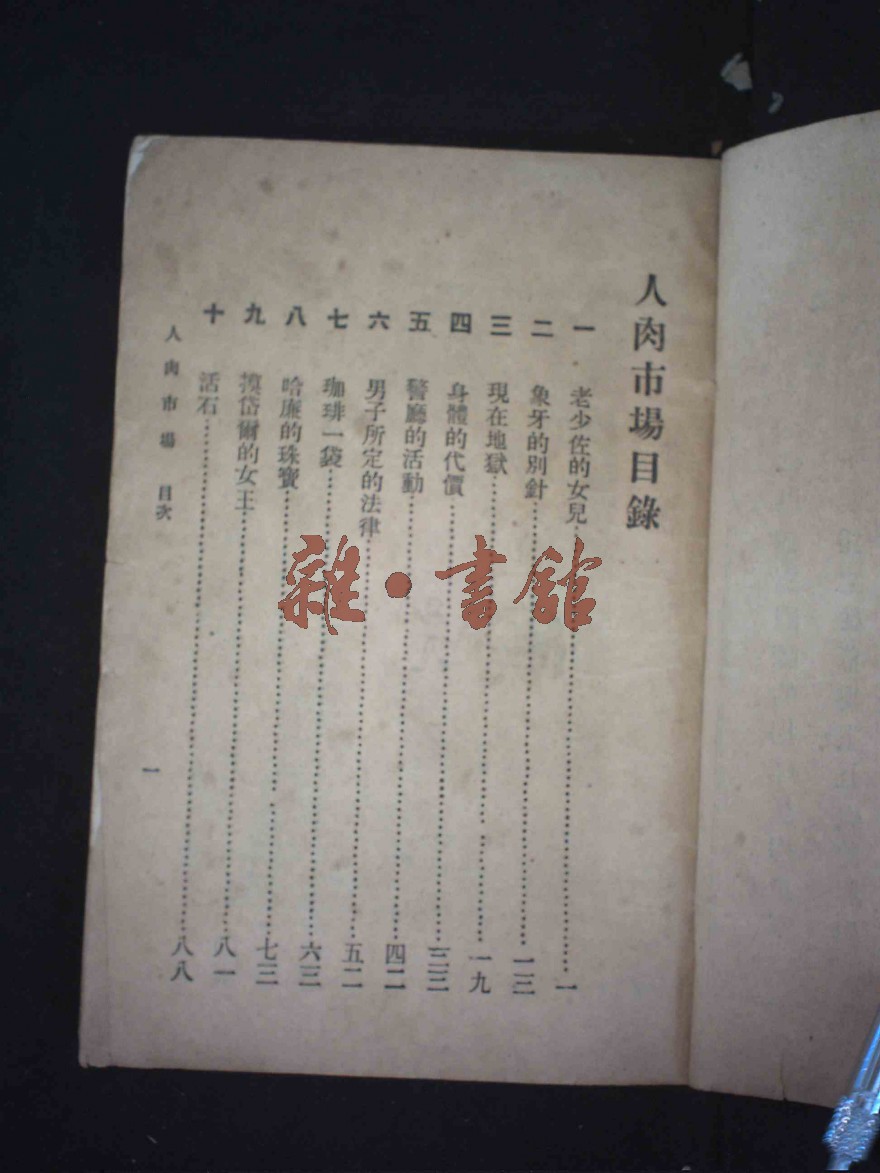 人肉市場目錄
一 老少佐的女兒……一
二 象牙的別針……一三
三 現在地獄……一九
四 身體的代價……三三
五 警廳的活動……四二
六 男子所定的法律……五二
七 珈琲一袋……六三
八 哈廉的珠寶……七三
九 摸岱爾的女王……八一
十 活石……八八
人肉市場 目次
一
雜·書館